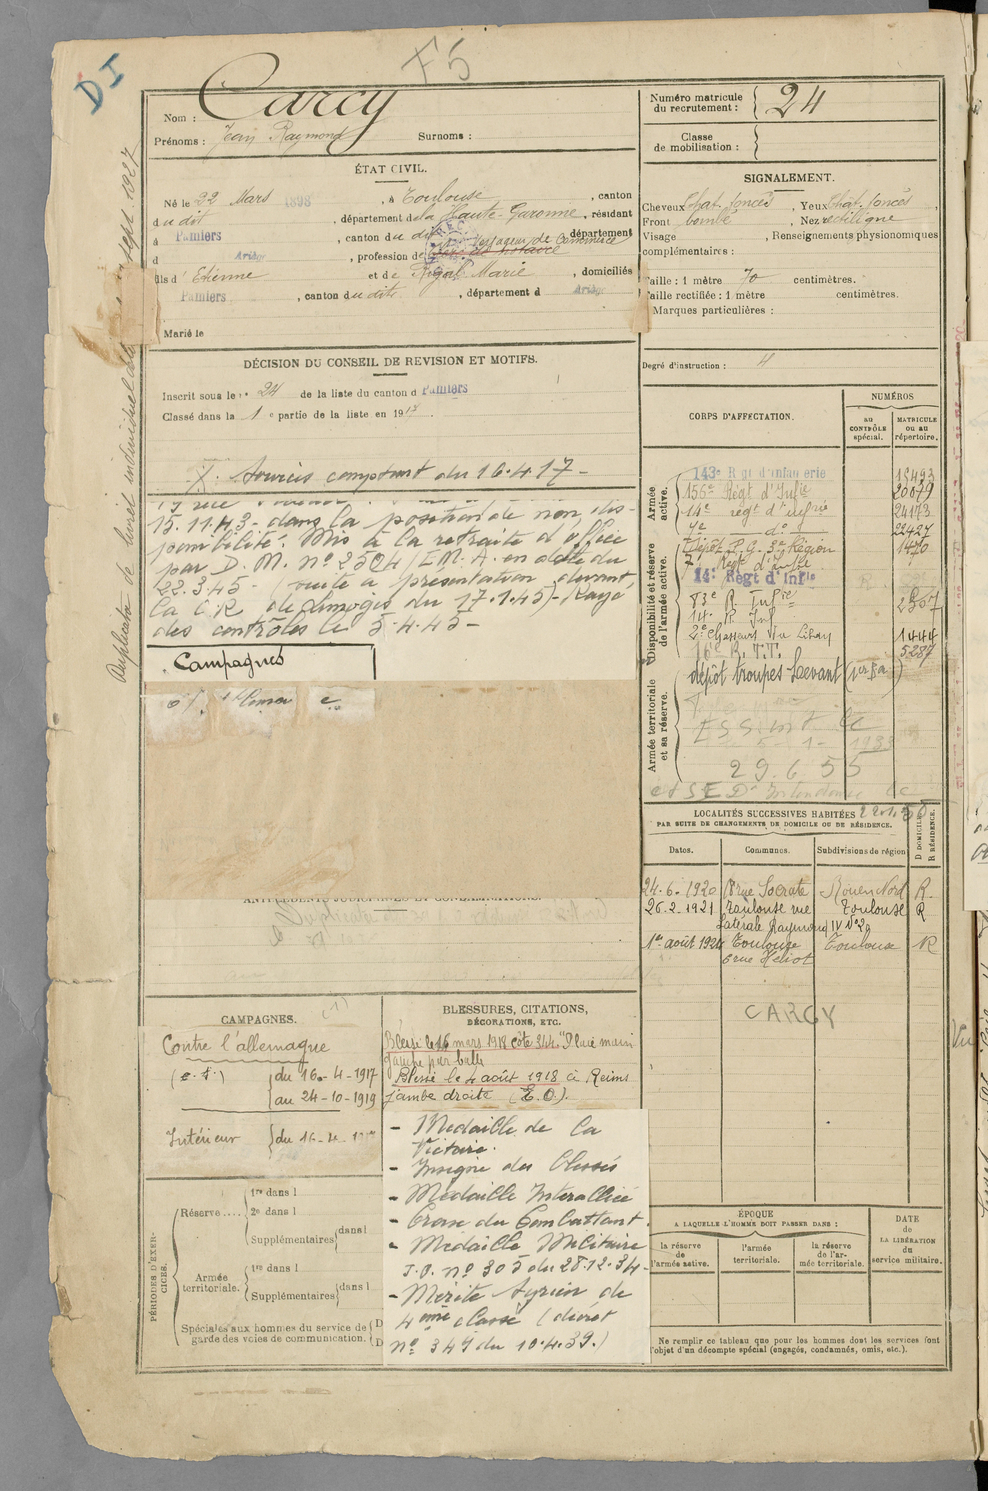 F5
DI
Nom : Carcy
Prénoms : Jean Raymond Surnoms :
Numéro matricule du recrutement : 24
Classe de mobilisation :
ÉTAT CIVIL.
Né le 22 Mars 1898, à Toulouse, canton
du dit, département de la Haute-Garonne, résidant
à Pamiers, canton du dit, département
d Ariège, profession de Voyageur de Commerce
fils d'Etienne et de Rigal Marie, domiciliés
Pamiers, canton du dit, département d Ariège
Marié le
SIGNALEMENT.
Cheveux Chat. foncés, Yeux Chat. foncés,
Front bombé, Nez rectiligne
Visage , Renseignements physionomiques
complémentaires :
Taille : 1 mètre 70 centimètres.
Taille rectifiée : 1 mètre centimètres.
Marques particulières :
Degré d'instruction : 4
DÉCISION DU CONSEIL DE REVISION ET MOTIFS.
Inscrit sous le n° 24 de la liste du canton d Pamiers
Classé dans la 1e partie de la liste en 1917.
Services comptant du 16.4.17 -
15.11.43 - dans la position de non dis-
ponibilité. Mis à la retraite d'office
par D. M. n° 2504/EMA. en date du
22.3.45 - (suite à présentation devant
la C.R. de Limoges du 17.1.45) - Rayé
des contrôles le 5.4.45 -
Campagnes
Duplicata de livret individuel
sept. 1927
CORPS D'AFFECTATION.
NUMÉROS
AU CONTRÔLE spécial.
MATRICULE OU AU répertoire.
Armée active.
143e R gt d'infanterie 15493
156e Régt d'Infie 20079
14e régt d'infrie 24173
4e do 22427
Dépôt P.G. 3e Région 1470
7e Régt d'Infie
Disponibilité et réserve de l'armée active.
14e Régt d'Infie
83e R. Infie 2307
14. R. Inf
2e Chasseurs du Liban 1444
16e R. T. T. 5287
Armée territoriale et sa réserve.
dépôt troupes Levant
29.6.55
LOCALITÉS SUCCESSIVES HABITÉES
PAR SUITE DE CHANGEMENTS DE DOMICILE OU DE RÉSIDENCE.
Dates. Communes. Subdivisions de région
D DOMICILE. R RÉSIDENCE.
24-6-1920 rue Socrate Rouen Nord R.
26.2.1921 Toulouse rue Toulouse R
Latérale Raymond IV N°2a
1er août 1924 Toulouse Toulouse R
6 rue Héliot
CARCY
ANTÉCÉDENTS JUDICIAIRES ET CONDAMNATIONS.
CAMPAGNES.
Contre l'allemagne
du 16-4-1917
au 24-10-1919
Intérieur du 16-4-
BLESSURES, CITATIONS,
DÉCORATIONS, ETC.
Blessé le 16 mars 1918 côte 344. "Plaie main
gauche par balle
Blessé le 4 août 1918 à Reims
jambe droite (E.O.).
- Médaille de la
Victoire.
- Insigne des blessés
- Médaille Interalliée
- Croix du Combattant.
- Médaille Militaire
J.O. n° 305 du 28.12.34 -
- Mérite Syrien de
4ème classe (décret
n° 349 du 10.4.39.)
PÉRIODES D'EXERCICES.
Réserve....
1re dans l
2e dans l
Supplémentaires
dans l
Armée territoriale.
1re dans l
Supplémentaires
dans l
Spéciales aux hommes du service de
garde des voies de communication.
D
D
ÉPOQUE
A LAQUELLE L'HOMME DOIT PASSER DANS :
la réserve de l'armée active.
l'armée territoriale.
la réserve de l'armée territoriale.
DATE DE LA LIBÉRATION du service militaire.
Ne remplir ce tableau que pour les hommes dont les services font
l'objet d'un décompte spécial (engagés, condamnés, omis, etc.).